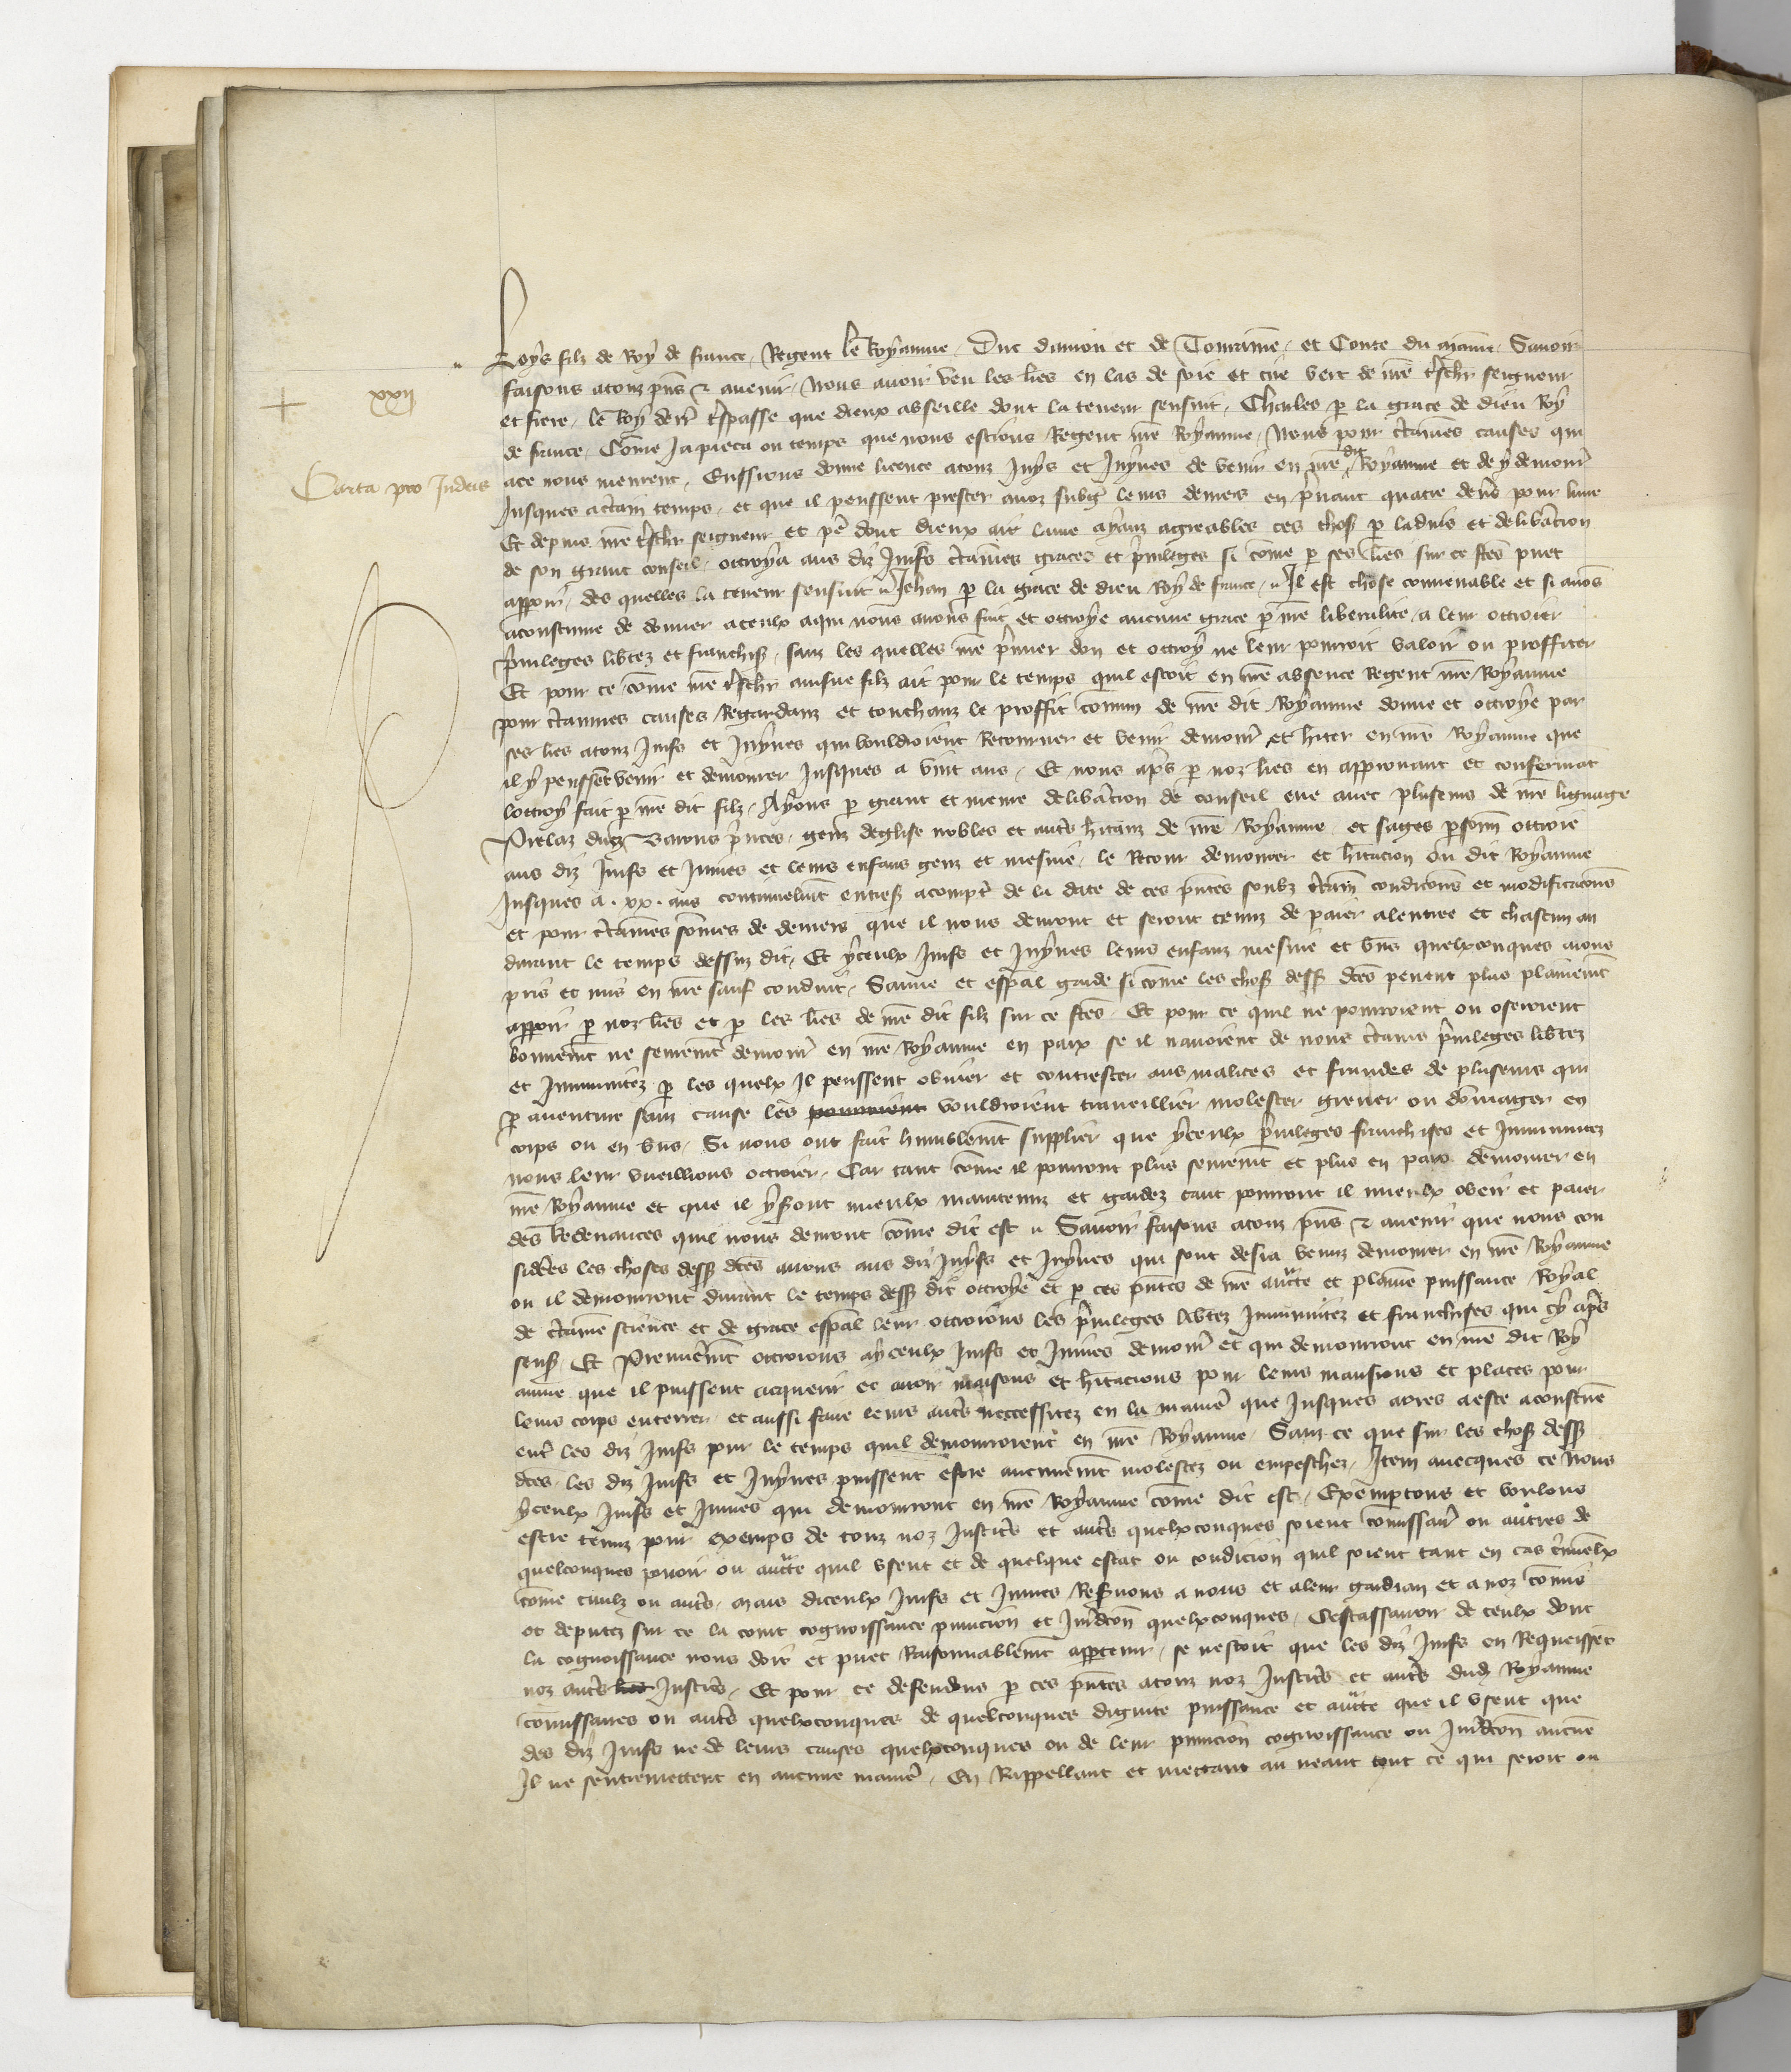 Loys filz de Roy de france, Regent le Royaume, Duc daniou et de Touraine, et Conte du maine, Sauoir
xxij
faisons a touz pns et auenir, Nous auoir veu les lres en las de soie et cire vert de nre treschr seigneur
et frere, le Roy derr trespasse que dieux absoille dont la teneur sensuit, Charles p la grace de dieu Roy
de france, Come Ja pieca ou temps que nous estions Regent nre Royaume, Nous pour ctaines causes qui
Carta pro Judeis
ace nous meurent, Eussions donne licence atouz Juys et Juyues de venir en nre dit Royaume et de y demorer
Jusques actain temps, et que il peussent prester auoz subgez leurs deniers en pnant quatre den pour liure
Et depuis nre treschr seigneur et pe dont dieux ait lame ayanz agreables ces chos p laduis et delibacion
de son grant conseil, ottroya aus diz Juifs ctaines graces et priuileges si come p ses lres sur ce ftes puet
apparoir, des quelles la teneur sensuit Jehan p la grace de dieu Roy de france, Il est chose conuenable et si auos
acoustume de donner aceulx aqui nous auons fait et ottroye aucune grace p nre liberalite, a leur ottroier
priuileges libtez et franchis, sanz les quelles nre primer don et ottroy ne leur pourroit valoir ou proffiter
Et pour ce come nre treschr ainsne filz ait pour le temps quil estoit en nre absence Regent nre Royaume
pour ctaines causes Regardanz et touchanz le proffit comun de nre dit Royaume donne et ottroye par
ses lres atouz Juifs et Juyues qui vouldroient Retourner et venir demorer et hiter en nre Royaume que
il y peussent venir et demourer Jusques a vint ans, Et nous aps p noz lres en approuuant et confermat
lottroy fait p nre dit filz, Ayons p grant et meure delibacion de conseil eue auec plusieurs de nre lignage
Prelaz ducz Barons princes, genz deglise nobles et auts hitanz de nre Royaume, et sages psonn ottroie
aus diz Juifs et Juiues et leurs enfans genz et mesnie, le Retour demourer et hitacion ou dit Royaume
Jusques a .xx. ans continuelmt entiers acompt de la date de ces pntes soubz ctain condicions et modificacions
et pour ctaines somes de deniers que il nous deuront et seront tenuz de paier alentree et chascun an
durant le temps dessuz dit, Et yceulx Juifs et Juyues leurs enfanz mesnie et bns quelxconques auons
pris et mis en nre sauf conduit, Sauue et espal garde si come les chos dess dctes peuent plus plainemt
apparoir p noz lres et p les lres de nre dit filz sur ce ftes, Et pour ce quil ne pourroient ou oseroient
bonnemt ne seuremt demorer en nre Royaume en paix se il nauoient de nous ctains priuileges libtez
et Jmmunitez p les quelx Il peussent obuier et contrester aus malices et fraudes de plusieurs qui
p auenture sanz cause les pourroient vouldroient traueillier molester greuer ou domager en
corps ou en bns, Si nous ont fait humblemt supplier que yceulx priuileges franchises et Jmmunitez
nous leur vueillions ottroier, Car tant come il pourront plus seuremt et plus en paix demourer en
nre Royaume et que il y sront mieulx maintenuz et gardez tant pourront il mieulx obeir et paier
des Redeuances quil nous deuront come dit est Sauoir faisons atouz pns et auenir que nous con
siders les choses dess dctes auons aus diz Juyfs et Juyues qui sont desia venuz demourer en nre Royaume
ou il demourront durant le temps dess dit ottroye et p ces pntes de nre aucte et plaine puissance Royal
de ctaine science et de grace espal leur ottroions les priuileges libtez Jmmunitez et franchises qui cy aps
sens, Et Premieremt ottroions ayceulx Juifs et Juiues demorer et qui demourront en nre dit Roy
aume que il puissent acquerir et auoir maisons et hitacions pour leurs mansions et places pour
leurs corps enterrer, et aussi faire leurs auts neccessitez en la manie que Jusques aores a este acoustue
ent les diz Juifs pour le temps quil demourroient en nre Royaume, Sanz ce que sur les chos dess
dctes, les diz Juifs et Juyues puissent estre aucunemt molestez ou empeschez, Item auecques ce Nous
yceulx Juifs et Juiues qui demourront en nre Royaume come dit est, Exemptons et voulons
estre tenuz pour exemps de touz noz Justiciers et auts quelxconques soient comissair ou autres de
quelconques pouoir ou aucte quil vsent et de quelque estat ou condicion quil soient tant en cas criminelx
come ciuilz ou auts, mais diceulx Juifs et Juiues Resruons a nous et aleur gardian et a noz comis
et deputez sur ce la court cognoissance punicion et Juridcon quelxconques, Cestassauoir de ceulx dont
la cognoissance nous doit et puet Raisonnablemt apptenir, se nestoit que les diz Juifs en Requeissent
noz auts Justiciers, Et pour ce defendons p ces pntes atouz noz Justiciers et auts dudit Royaume
comissaires ou auts quelxconques de quelconques dignite puissance et aucte que il vsent que
des diz Juifs ne de leurs causes quelxconques ou de leur punicion cognoissance ou Juridcon aucune
Il ne sentremettent en aucune manie, En Rappellant et mettant au neant tout ce qui seroit ou